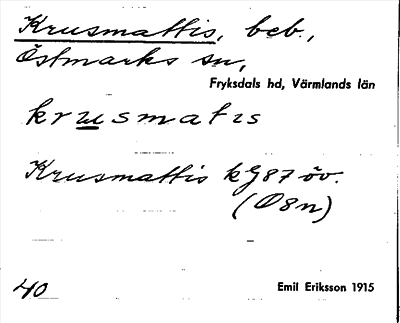 Krusmattis, beb.,
Östmarks sn,
Fryksdals hd, Värmlands län
krusmatis
Krusmattis kG87 öv.
(O8n)
40
Emil Eriksson 1915